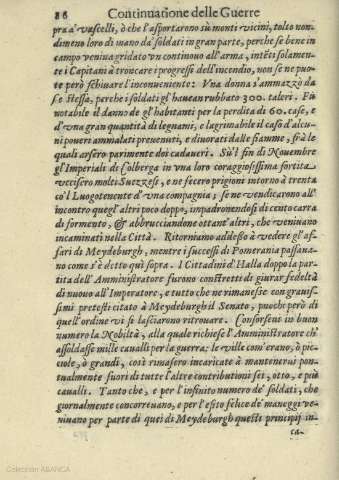 86 Continuatione delle Guerre
pra à vascelli, ò che l'asportarono sù monti vicini, tolto non-
dimeno loro di mano da' soldati in gran parte, perche se bene in
campo veniua gridato vn continuo all'arma, intẽti solamen-
te i Capitani à troncare i progressi dell'incendio, non se ne puo-
te però schiuare l'inconueniente: Vna donna s'ammazzò da
se stessa, parche i soldati gl'haueau rubbato 300. taleri. Fù
notabile il danno de gl'habitanti per la perdita di 60. case, e
d'vna gran quantità di legnami, e lagrimabile il caso d'alcu-
ni poueri ammalati preuenuti, e diuorati dalle fiamme, frà le
quali arsero parimente dei cadaueri. Sù'l fin di Nouembre
gl'Imperiali di Colberga in vna loro coraggiosissima sortita
vccisero molti Suezzesi, e ne fecero prigioni intorno à trenta
cõ'l Luogotenente d'vna compagnia; se ne vendicarono all'
incontro quegl'altri poco doppo, impadronendosi di cento carra
di formento, & abbrucciandone ottant'altri, che veniuano
incaminati nella Città. Ritorniamo adesso à vedere gl'af-
fari di Meydeburgh, mentre i successi di Pomerania passaua-
no come s'è detto quì sopra. I Cittadini d'Halla doppo la par-
tita dell'Amministratore furono constretti di giurar fedeltà
di nuouo all'Imperatore, e tutto che ne rimanesse con grauis-
simi pretesti citato à Meydeburgh il Senato, puochi però di
quell'ordine vi si lasciarono ritrouare. Consorse in buon
numero la Nobiltà, alla quale richiese l'Amministratore ch'
assoldasse mille caualli per la guerra; le ville com'erano, ò pic-
ciole, ò grandi, così rimasero incaricate à mantenerui pon-
tualmente fuori di tutte l'altre contributioni sei, otto, e più
caualli. Tanto che, e per l'infinito numero de' soldati, che
giornalmente concorreuano, e per l'esito felice de' maneggi ve-
niuano per parte di quei di Meydeburgh questi principij in-
ca-
Colección ABANCA